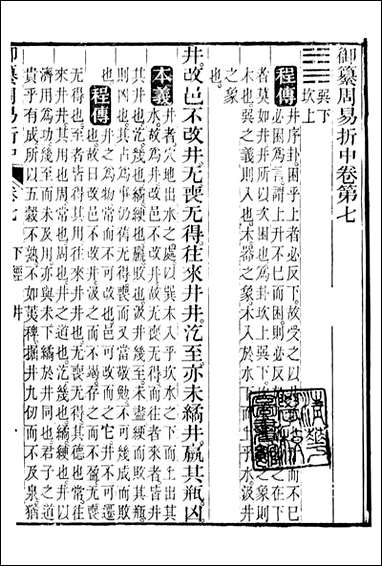 御纂周易折中卷第七
巽下
坎上
程傳
井序卦困乎上者必反下故受之以
而不已
必困為言謂上升不已而困則必反於下也物之在下
者莫如井井所以次困也為卦坎上巽下坎水也巽之象則
木也巽之義則入也木器之象木入於水下而上乎水汲井
之象
也
井改邑不改井无喪无得往來井井汔至亦未繘井羸其瓶凶
本義
井者穴地出水之處以巽木入乎坎水之下而上出其
水故為井改邑不改井故无喪无得而往者來者皆井
其井也汔幾也繘綆也羸敗也汲井幾至未盡綆而敗其瓶
則凶也其占為事仍舊无得喪而又當敬勉不可幾成而敗
也
程傳
井之為物常而不可改也邑可改而之它井不可遷
也故曰改邑不改井汲之而不竭存之而不盈无喪
无得也至者皆得其用往來井井也无喪无得其德也常往
來井井其用也周常也周也井之道也汔幾也繘綆也井以
濟用為功幾至而未及用亦與未下繘於井同也君子之道
貴乎有成所以五穀不熟不如荑稗掘井九仞而不及泉猶
御纂周易折中
卷七
下經
井